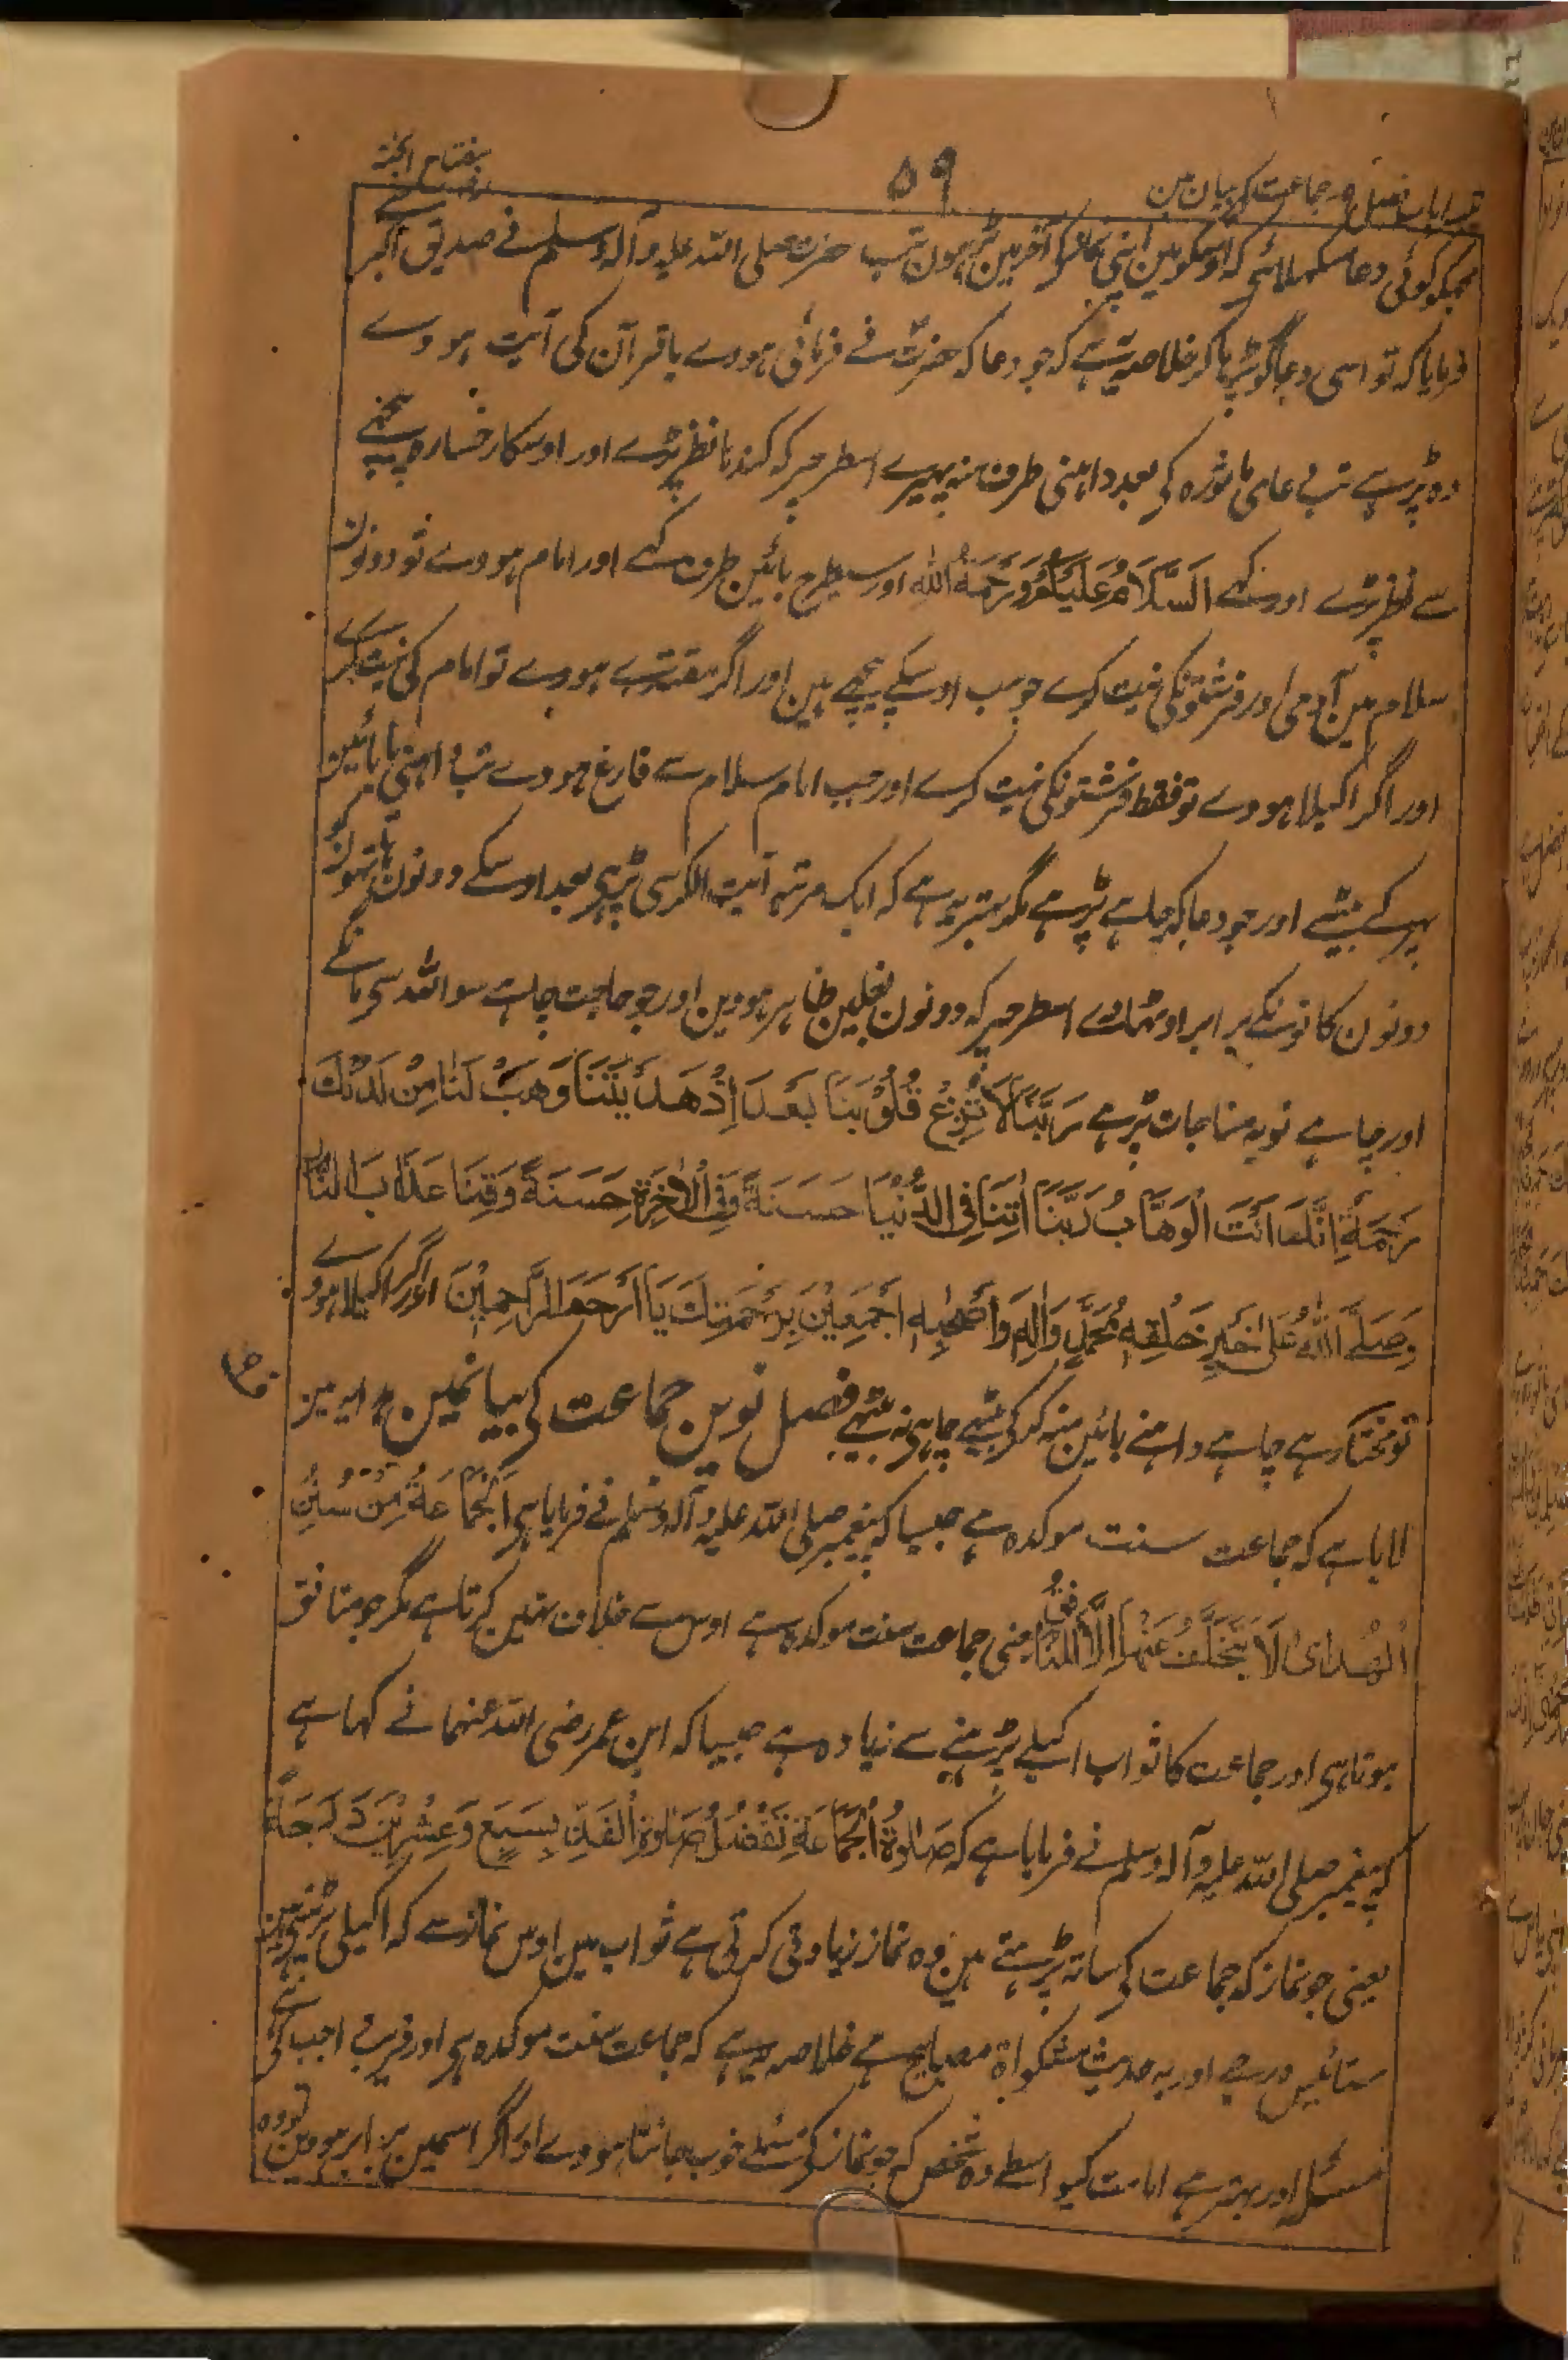 مفتاح الجنۃ
۵۹
باب فصل ۹ جماعت کے بیان مین
مجکو کوئی دعا سکھلائے کہ اوسکو مین اپنی نماز کو آخر مین پڑہون تب حضرت صلی اللہ علیہ وآلہ وسلم نے صدیق اکبر سے
فرمایا کہ تو اسی دعا کو پڑہا کر خلاصہ یہ ہے کہ جو دعا کہ حضرت نے فرمائی ہووے یا قرآن کی آیت ہووے
وہ پڑہے تب دعای ماثورہ کی بعد داہنی طرف منہ پہیرے اسطرحپر کہ کندہا نظر پڑے اور اوسکا رخسارہ پیچھے
سے نظر پڑے اور کہے اَلسَّلَامُ عَلَیْکُمْ وَرَحْمَۃُ اللّٰہِ اور سیطرح بائین طرف کہے اور امام ہووے تو دونون
سلام مین آدمی اور فرشتونکی نیت کرے جو سب اوسکے پیچھے ہین اور اگر مقتدے ہووے تو امام کی نیت کرے
اور اگر اکیلا ہووے تو فقط فرشتونکی نیت کرے اور جب امام سلام سے فارغ ہووے تب داہنی یا بائین
پہر کے بیٹھے اور جو دعا کہ چاہے پڑہے مگر بہتر یہ ہے کہ ایک مرتبہ آیت الکرسی پڑہی بعد اوسکے دونون ہاتہون کو
دونون کانونکے برابر اوٹھاوے اسطرحپر کہ دونون بغلین ظاہر ہووین اور جو حاجت چاہے سو اللہ سی مانگے
اور چاہے تو یہ مناجات پڑہے رَبَّنَا لَا تُزِغْ قُلُوْبَنَا بَعْدَ اِذْ ھَدَیْتَنَا وَھَبْ لَنَا مِنْ لَدُنْکَ
رَحْمَۃً اِنَّکَ اَنْتَ الْوَھَّابُ رَبَّنَا اٰتِنَا فِی الدُّنْیَا حَسَنَۃً وَفِی الْاٰخِرَۃِ حَسَنَۃً وَقِنَا عَذَابَ النَّارِ
وَصَلَّی اللّٰہُ عَلٰی خَیْرِ خَلْقِہٖ مُحَمَّدٍ وَاٰلِہٖ وَاَصْحٰبِہٖ اَجْمَعِیْنَ بِرَحْمَتِکَ یَا اَرْحَمَ الرَّاحِمِیْنَ اور اگر اکیلا ہووے
تو مختار ہے چاہے داہنے بائین منہ کر کی بیٹھے چاہی نہ بیٹھے فصل نوین جماعت کی بیانمین ہدایہ مین
لایا ہے کہ جماعت سنت موکدہ ہے جیسا کہ پیغمبر صلی اللہ علیہ وآلہ وسلم نے فرمایا ہی اَلْجَمَاعَۃُ مِنْ سُنَنِ
الْھُدٰی لَا یَتَخَلَّفُ عَنْھَا اِلَّا الْمُنَافِقُ یعنی جماعت سنت موکدہ ہے اوس سے خلاف نہین کرتا ہے مگر جو منافق
ہوتا ہی اور جماعت کا ثواب اکیلے پڑہنے سے زیادہ ہے جیسا کہ ابن عمر رضی اللہ عنہما نے کہا ہے
کہ پیغمبر صلی اللہ علیہ وآلہ وسلم نے فرمایا ہے کہ صَلٰوۃُ الْجَمَاعَۃِ تَفْضُلُ صَلٰوۃَ الْفَذِّ بِسَبْعٍ وَعِشْرِیْنَ دَرَجَۃً
یعنی جو نماز کہ جماعت کی ساتہ پڑہتے ہین وہ نماز زیادتی کرتی ہے ثواب مین اوس نماز سے کہ اکیلی پڑہتے ہین
ستائیس درجے اور یہ حدیث مشکواۃ مصابیح مے خلاصہ یہ ہے کہ جماعت سنت موکدہ ہی اور قریب واجب کی ہے
مسئلہ اور بہتر ہے امامت کیواسطے وہ شخص کہ جو نماز کے مسئلے خوب جانتا ہووے اور اگر اسمین برابر ہووین تو وہ